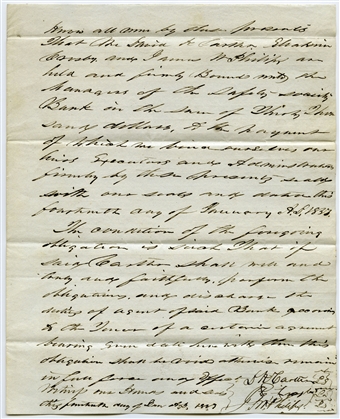 Know all men by these presents
That We David K Carther Eliakim
Crosby and James W Phillips are
held and firmly Bound unto the
Managers of the Safety society
Bank in the sum of Thirty Thou
sand dollars, to the payment
of which we bind ourselves our
heirs Executors and Administrators
firmly by these presents sealed
with our seals and dated this
fourteenth day of January A.D. 1837.
The condition of the foregoing
obligation is Such That if
Said Carther shall well and
truly and faithfully perform the
obligations, and discharge the
duties of agent of said Bank according
to the Tenor of a certain agreement
bearing even date herewith then this
obligation shall be void otherwise remain
in full force and effect
Witness our Hands and seals
this fourteenth day of Jan A.D. 1837